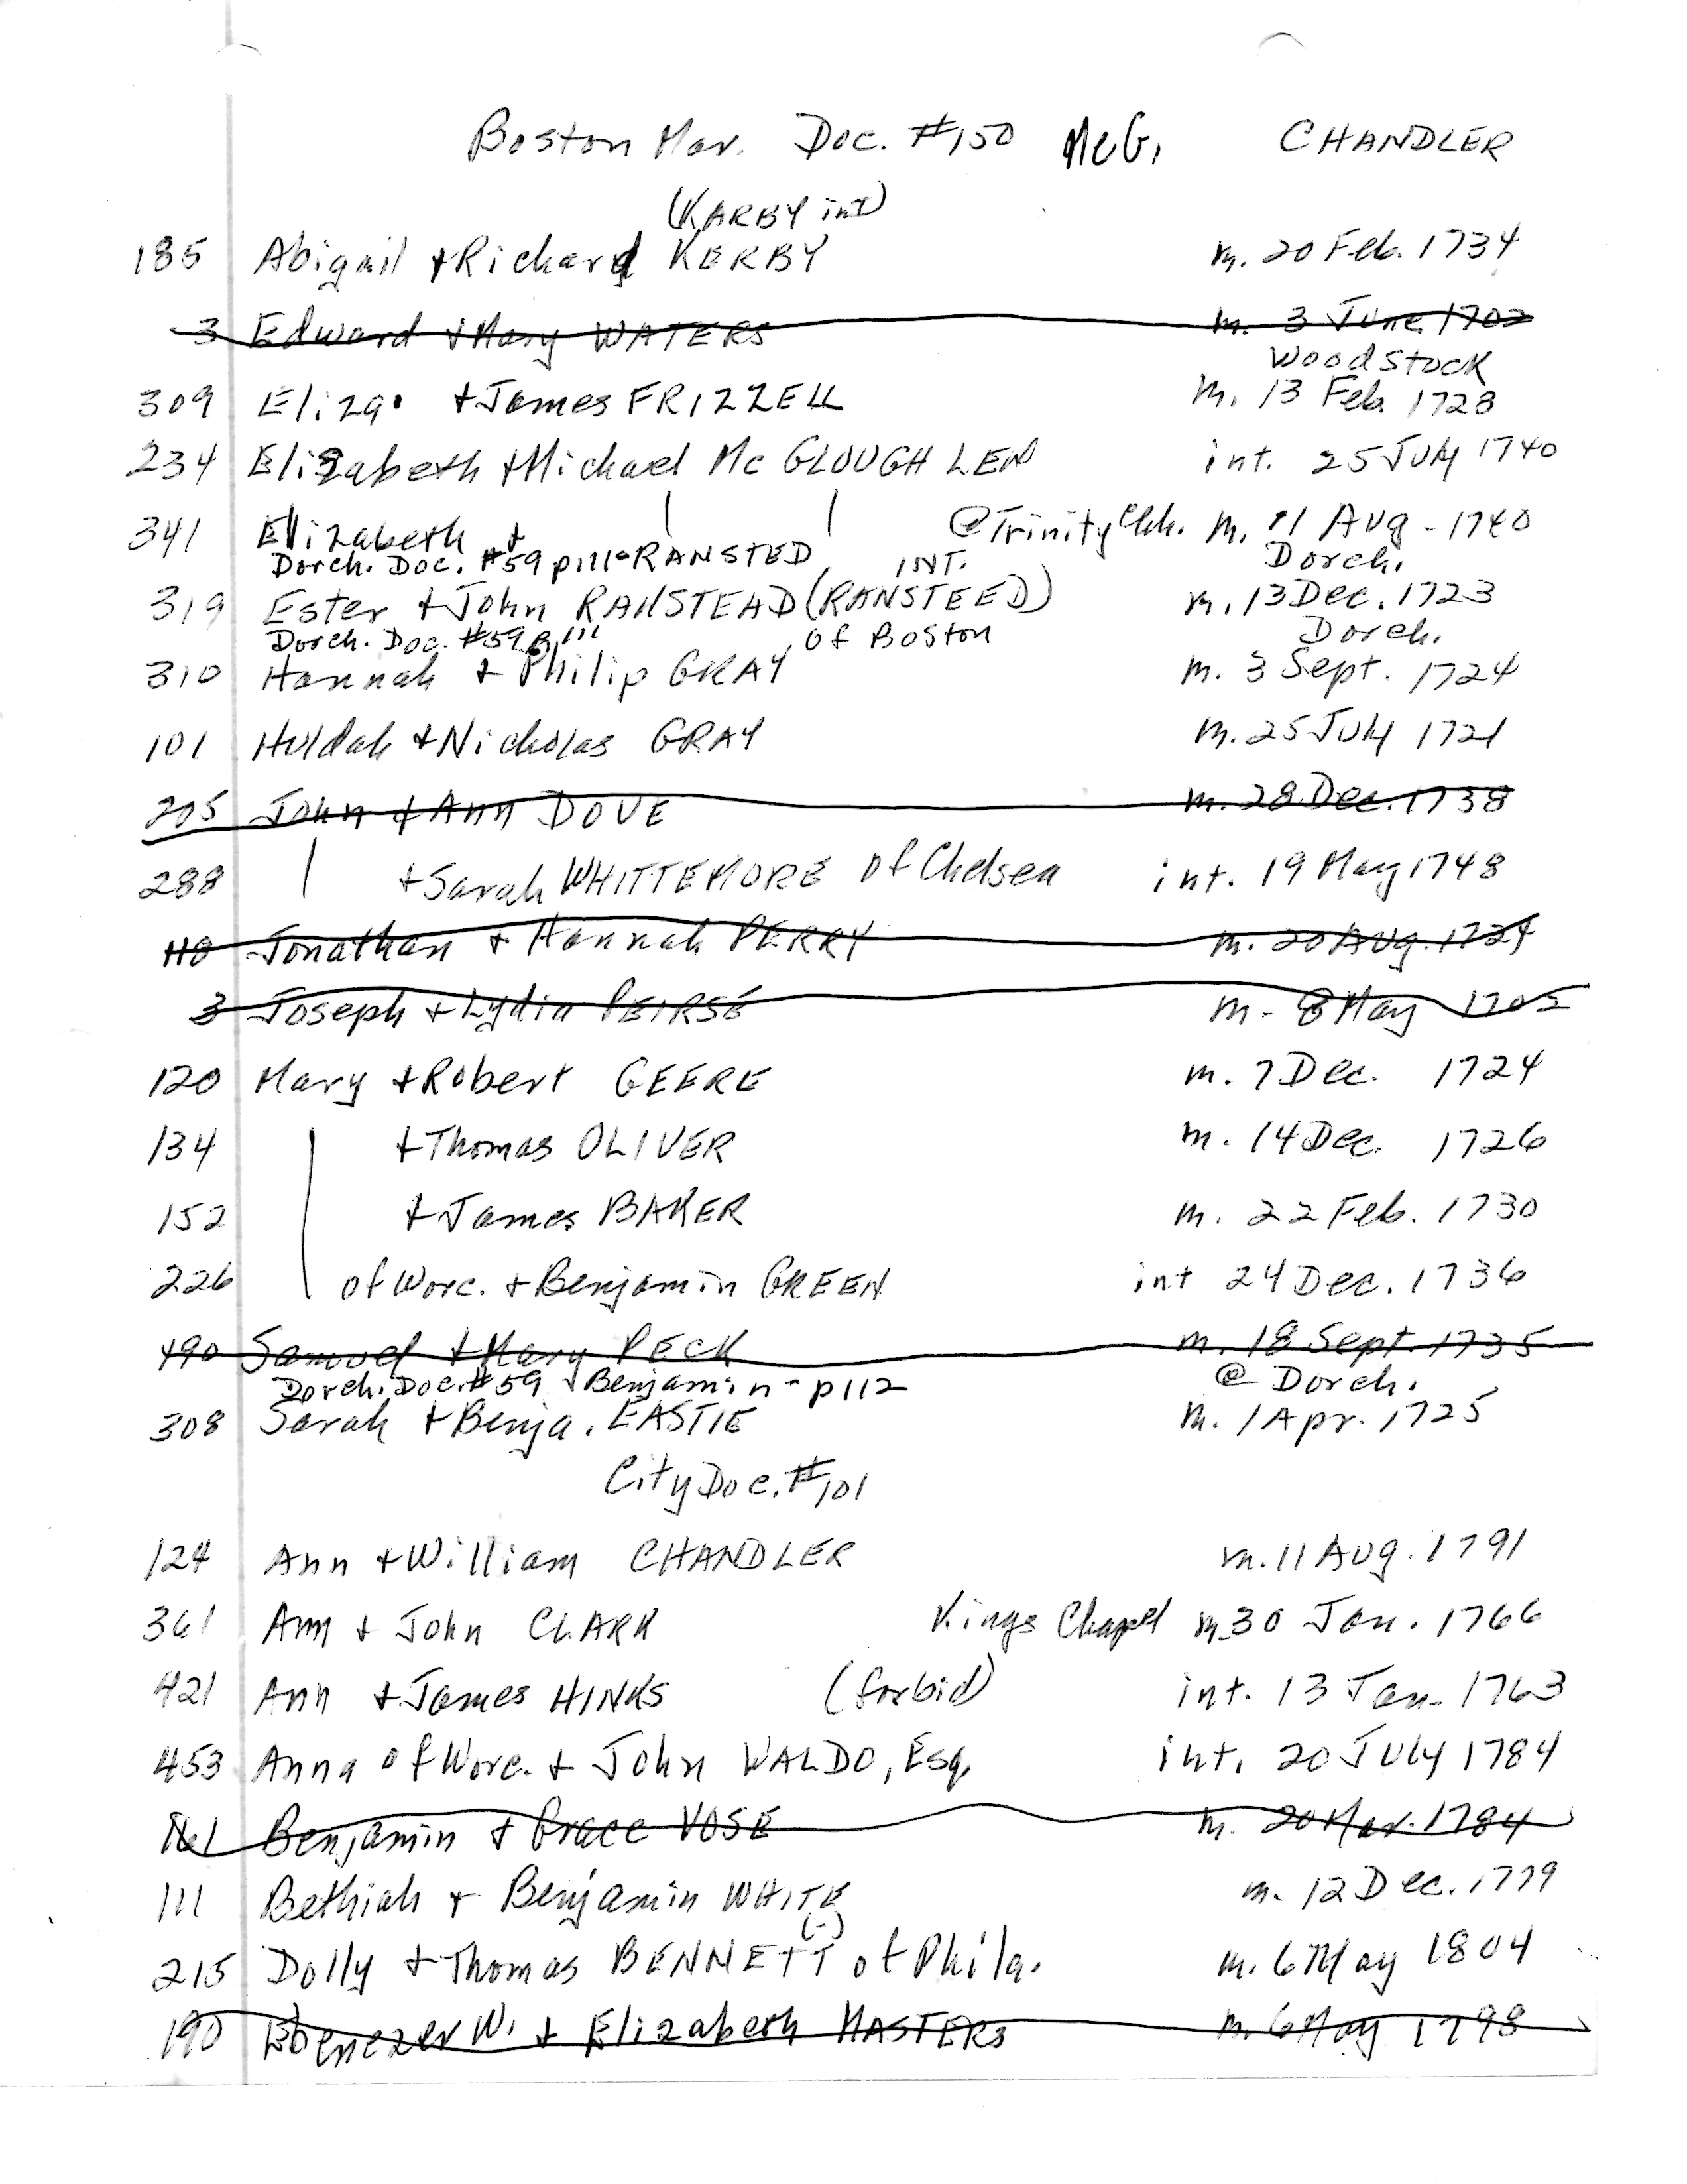 Boston Mar. Doc. #150 McG. CHANDLER
(KARBY int)
185 Abigail + Richard KERBY m. 20 Feb. 1734
3 Edward + Mary WATERS m. 3 June 1702
Woodstock
309 Eliza. + James FRIZZELL m. 13 Feb 1728
234 Elizabeth + Michael McGLOUGHLEN int. 25 July 1740
341 Elizabeth + @ Trinity Chh. m. 11 Aug. 1740
Dorch. Doc. #59 p111=RANSTED INT. Dorch.
319 Ester + John RANSTEAD (RANSTEED) m. 13 Dec. 1723
Dorch. Doc. #59 p.111 of Boston Dorch.
310 Hannah + Philip GRAY m. 3 Sept. 1724
101 Huldah + Nicholas GRAY m. 25 July 1721
205 John + Ann DOVE m. 28 Dec. 1738
288 + Sarah WHITTEMORE of Chelsea int. 19 May 1748
118 Jonathan + Hannah PERRY m. 20 Aug. 1724
3 Joseph + Lydia PEIRSE m. 8 May 1702
120 Mary + Robert GEERE m. 7 Dec. 1724
134 + Thomas OLIVER m. 14 Dec. 1726
152 + James BAKER m. 22 Feb. 1730
226 of Worc. + Benjamin GREEN int 24 Dec. 1736
190 Samuel + Mary PECK m. 18 Sept. 1735
Dorch. Doc. #59 + Benjamin - p112 @ Dorch.
308 Sarah + Benja. EASTIE m. 1 Apr. 1725
City Doc. #101
124 Ann + William CHANDLER m. 11 Aug. 1791
361 Ann + John CLARK Kings Chapel m. 30 Jan. 1766
421 Ann + James HINKS (forbid) int. 13 Jan. 1763
453 Anna of Worc. + John WALDO, Esq. int. 20 July 1784
Benjamin + Grace VOSE m. 20 Mar. 1784
111 Bethiah + Benjamin WHITE m. 12 Dec. 1779
(-)
215 Dolly + Thomas BENNETT of Phila. m. 6 May 1804
190 Ebenezer W. + Elizabeth MASTERS m. 6 May 1798